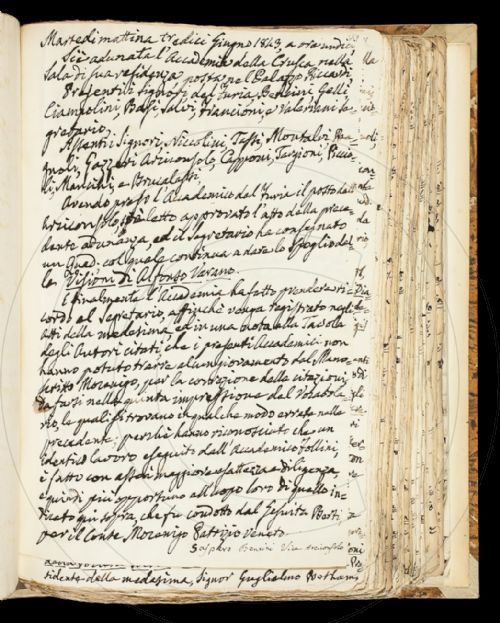 Martedì mattina tredici Giugno 1843, a ore undici,
Si è adunata l'Accademia della Crusca nella
Sala di sua residenza posta nel Palazzo Riccardi,
Presenti i Signori del Furia, Bencini, Gelli,
Ciampolini, Basi, Salvi, Francioni, e Valeriani Se-
gretario;
Assenti i Signori, Niccolini, Tassi, Montalvi,
Gazzeri Arciconsolo, Capponi, Targioni,
Mancini, e Brucalassi
Avendo preso l'Accademico del Furia il posto dell'
Arciconsolo, si è letto e approvato l'atto della prece-
dente adunanza, ed il Segretario ha consegnato
un Quad. col quale continua a dare lo spoglio del-
le Visioni di Alfonso Varano.
E finalmente l'Accademia ha fatto prendere ri-
cordi al Segretario, affinchè venga registrato negli
Atti della medesima ed in una nota alla Tavola
degli Autori citati, che i presenti Accademici non
hanno potuto trarre alcun giovamento dal Mano-
scritto Mocenigo, per la correzione delle citazioni,
da farsi nella quinta impressione del Vocabola-
rio, le quali si trovano in qualche modo errate nella
precedente; perchè hanno riconosciuto che un
identico lavoro eseguito dall'Accademico Follini,
è fatto con assai maggiore esattezza e diligenza,
e quindi più opportuno all'uopo loro di quello in-
dicato qui sopra, che fu condotto dal Gesuita Berti,
per il Conte Mocenigo Patrizio veneto.
Gaspero Bencini Vice Arciconsolo
sidente della medesima, Signor Guglielmo